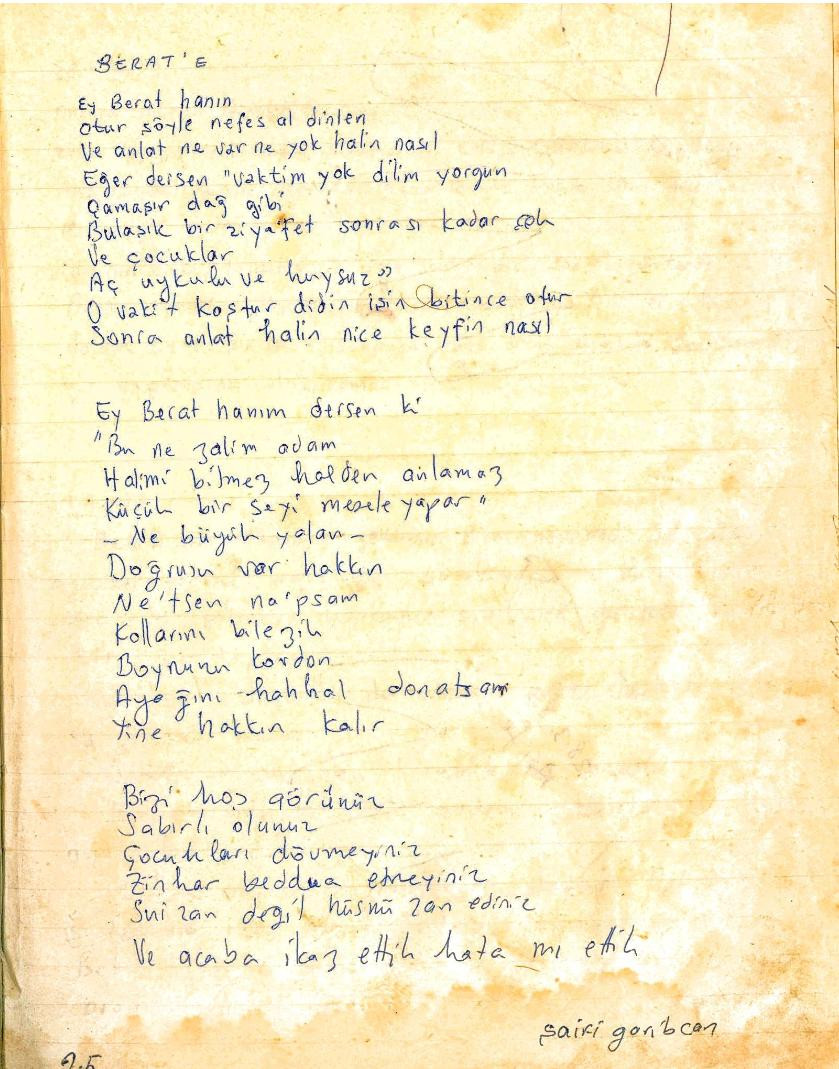 BERAT'E
Ey Berat hanın
otur şöyle nefes al dinlen
Ve anlat ne var ne yok halin nasıl
Eğer dersen "vaktim yok dilim yorgun
Çamaşır dağ gibi
Bulaşık bir ziyafet sonrası kadar çok
Ve çocuklar
Aç uykulu ve huysuz"
O vakit koştur didin işin bitince otur
Sonra anlat halin nice keyfin nasıl
Ey Berat hanım dersen ki
"Bu ne zalim adam
Halimi bilmez halden anlamaz
Küçük bir şeyi mesele yapar"
- Ne büyük yalan -
Doğrusu var hakkın
Ne'tsen na'psam
Kollarını bilezik
Boynunu kordon
Ayağını hahhal donatsam
Yine hakkın kalır
Bizi hoş görünüz
Sabırlı olunuz
Çocukları dövmeyiniz
Zinhar beddua etmeyiniz
Sui zan değil hüsnü zan ediniz
Ve acaba ikaz ettik hata mı ettik
şairi garibcan
25